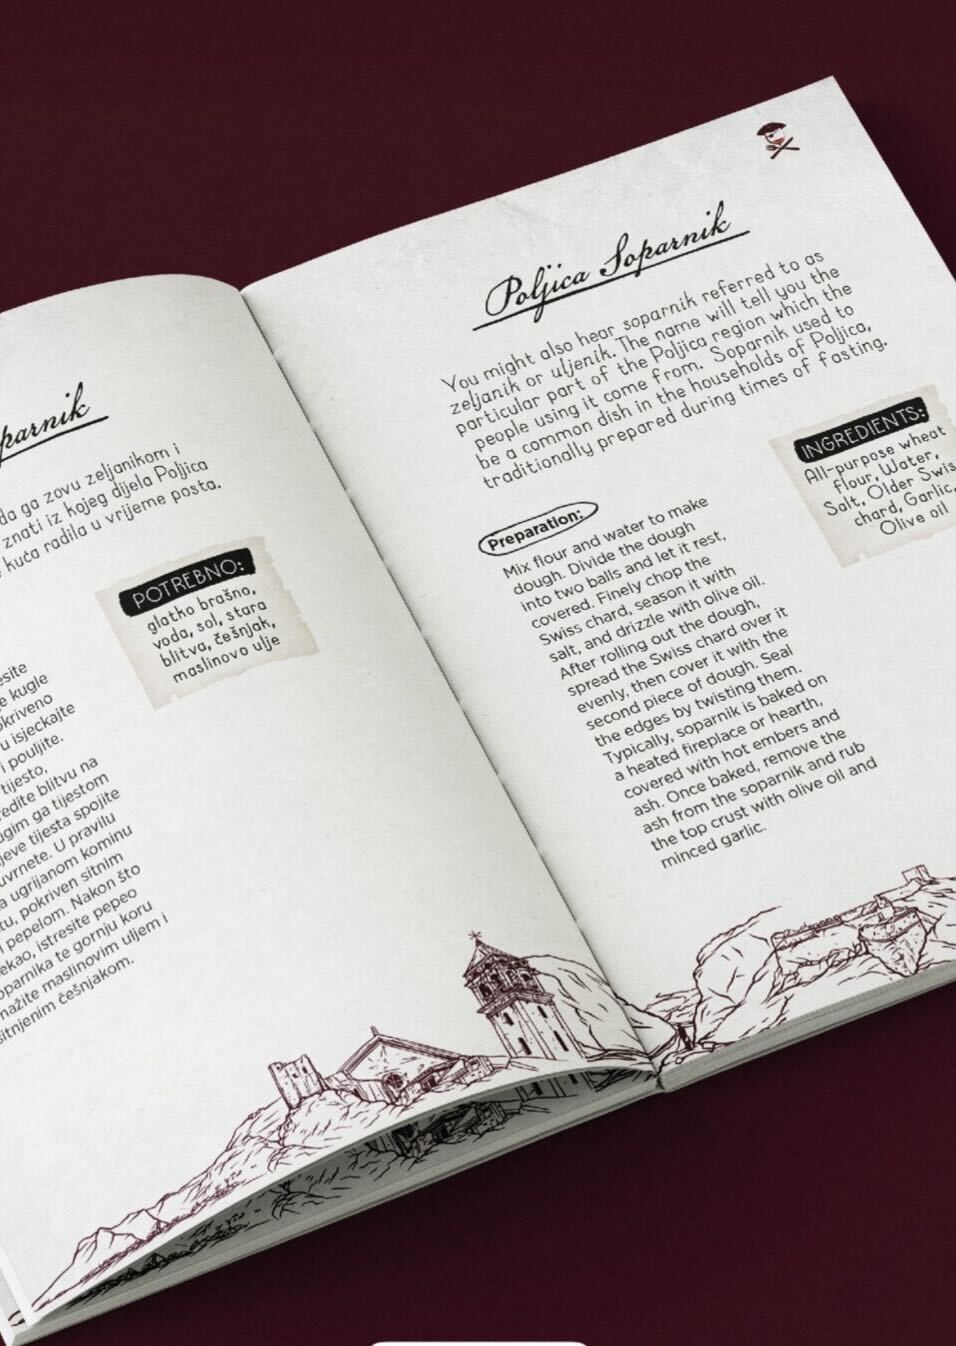 da ga zovu zeljanikom i
znati iz kojeg dijela Poljica
kuća radila u vrijeme posta.
POTREBNO:
glatko brašno,
voda, sol, stara
blitva, češnjak,
maslinovo ulje
kugle
u isjeckajte
i pouljite.
tijesto,
blitvu na
ga tijestom
tijesta spojite
uvrnete. U pravilu
ugrijanom kominu
pokriven sitnim
i pepelom. Nakon što
istresite pepeo
te gornju koru
maslinovim uljem i
češnjakom.
Poljica Soparnik
You might also hear soparnik referred to as
zeljanik or uljenik. The name will tell you the
particular part of the Poljica region which the
people using it come from. Soparnik used to
be a common dish in the households of Poljica,
traditionally prepared during times of fasting.
INGREDIENTS:
All-purpose wheat
flour, Water,
Salt, Older Swis
chard, Garlic,
Olive oil
Preparation:
Mix flour and water to make
dough. Divide the dough
into two balls and let it rest,
covered. Finely chop the
Swiss chard, season it with
salt, and drizzle with olive oil.
After rolling out the dough,
spread the Swiss chard over it
evenly, then cover it with the
second piece of dough. Seal
the edges by twisting them.
Typically, soparnik is baked on
a heated fireplace or hearth,
covered with hot embers and
ash. Once baked, remove the
ash from the soparnik and rub
the top crust with olive oil and
minced garlic.